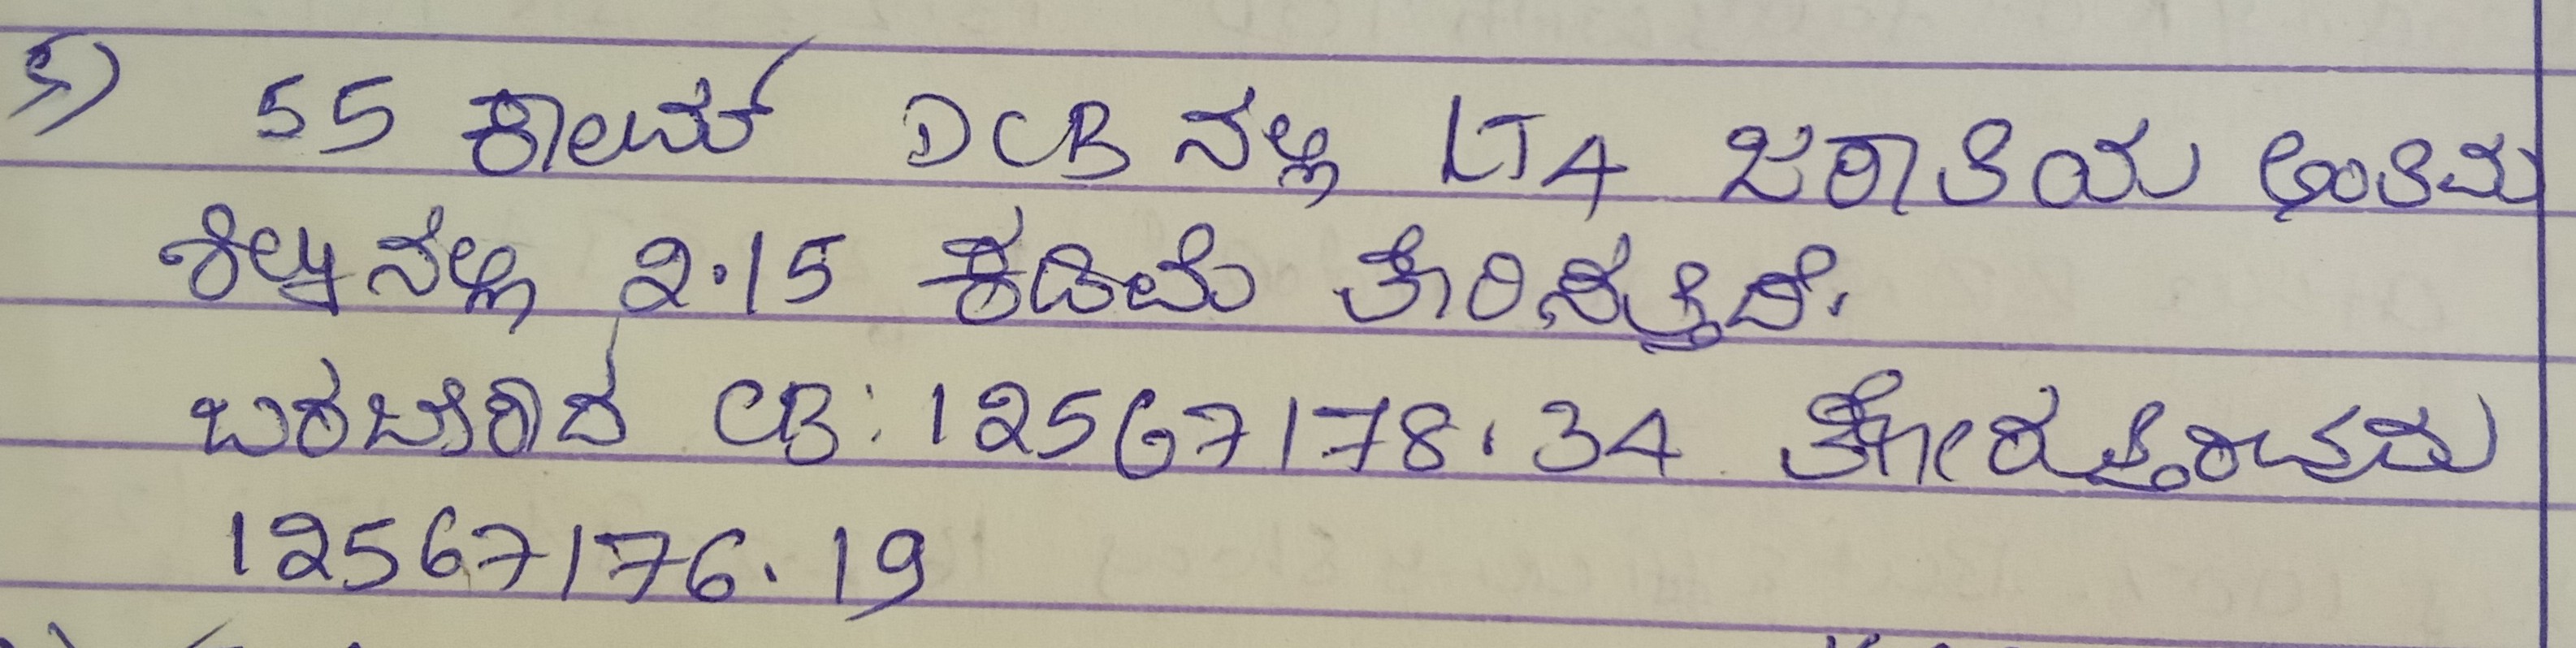 5) 55 ಕಾಲಮ್ DCB ನಲ್ಲಿ LT4 ಜಕಾತಿಯ ಅಂತಿಮ
ಶಿಲ್ಕುನಲ್ಲಿ 2.15 ಕಡಿಮೆ ತೋರಿಸುತ್ತಿದೆ.
ಬರಬೇಕಾದ CB: 12567178.34 ತೋರುತ್ತಿರುವುದು
12567176.19